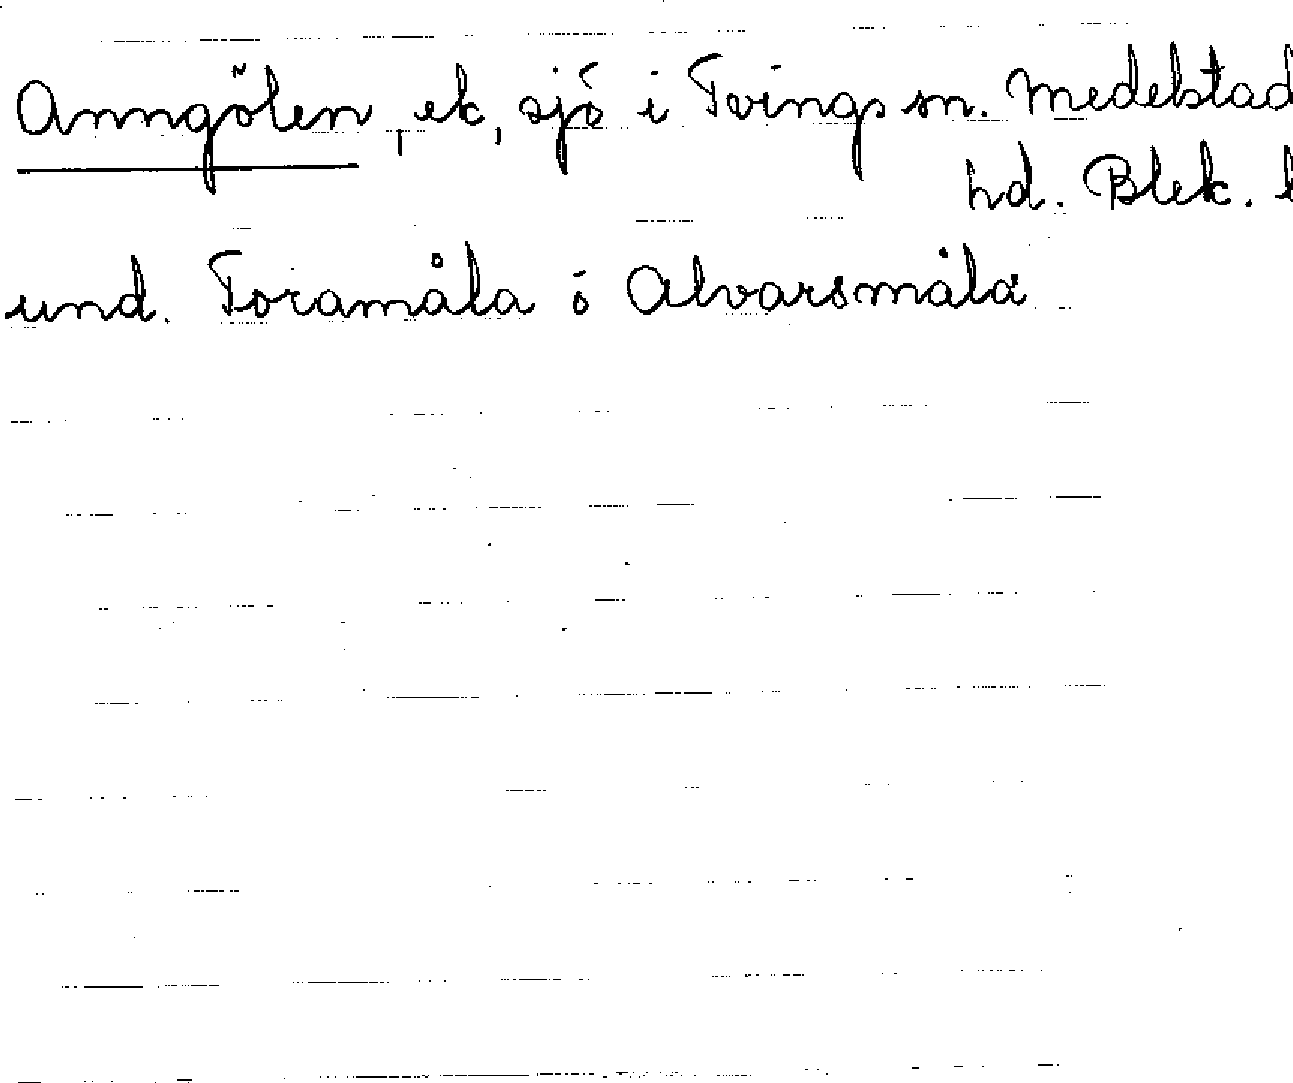 Anngölen, ek, sjö i Tvings sn. Medelstad
hd. Blek. l
und. Toramåla ö Alvarsmåla